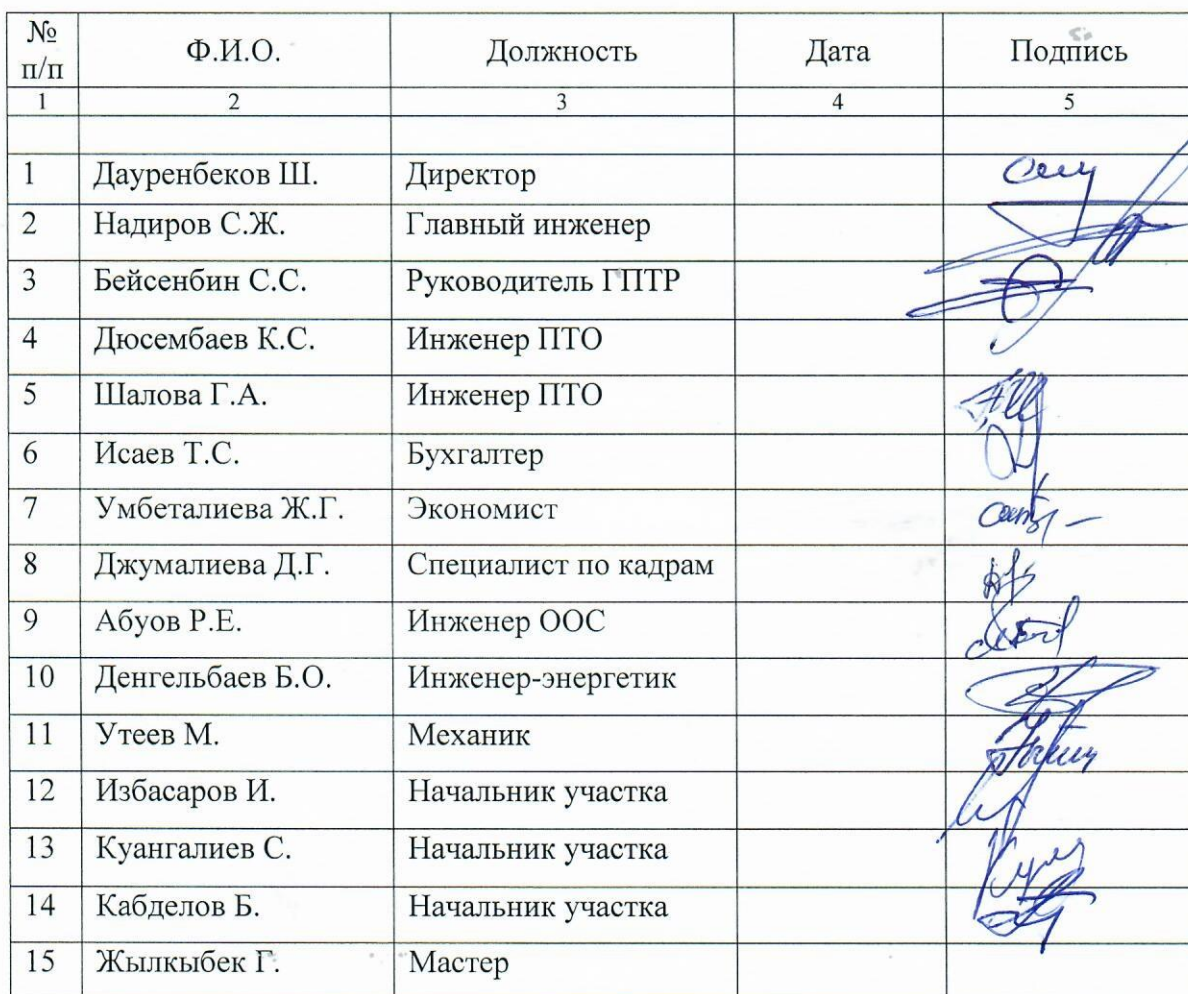 № п/п Ф.И.О. Должность Дата Подпись
1 2 3 4 5
1 Дауренбеков Ш. Директор
2 Надиров С.Ж. Главный инженер
3 Бейсенбин С.С. Руководитель ГПТР
4 Дюсембаев К.С. Инженер ПТО
5 Шалова Г.А. Инженер ПТО
6 Исаев Т.С. Бухгалтер
7 Умбеталиева Ж.Г. Экономист
8 Джумалиева Д.Г. Специалист по кадрам
9 Абуов Р.Е. Инженер ООС
10 Денгельбаев Б.О. Инженер-энергетик
11 Утеев М. Механик
12 Избасаров И. Начальник участка
13 Куангалиев С. Начальник участка
14 Кабделов Б. Начальник участка
15 Жылкыбек Г. Мастер